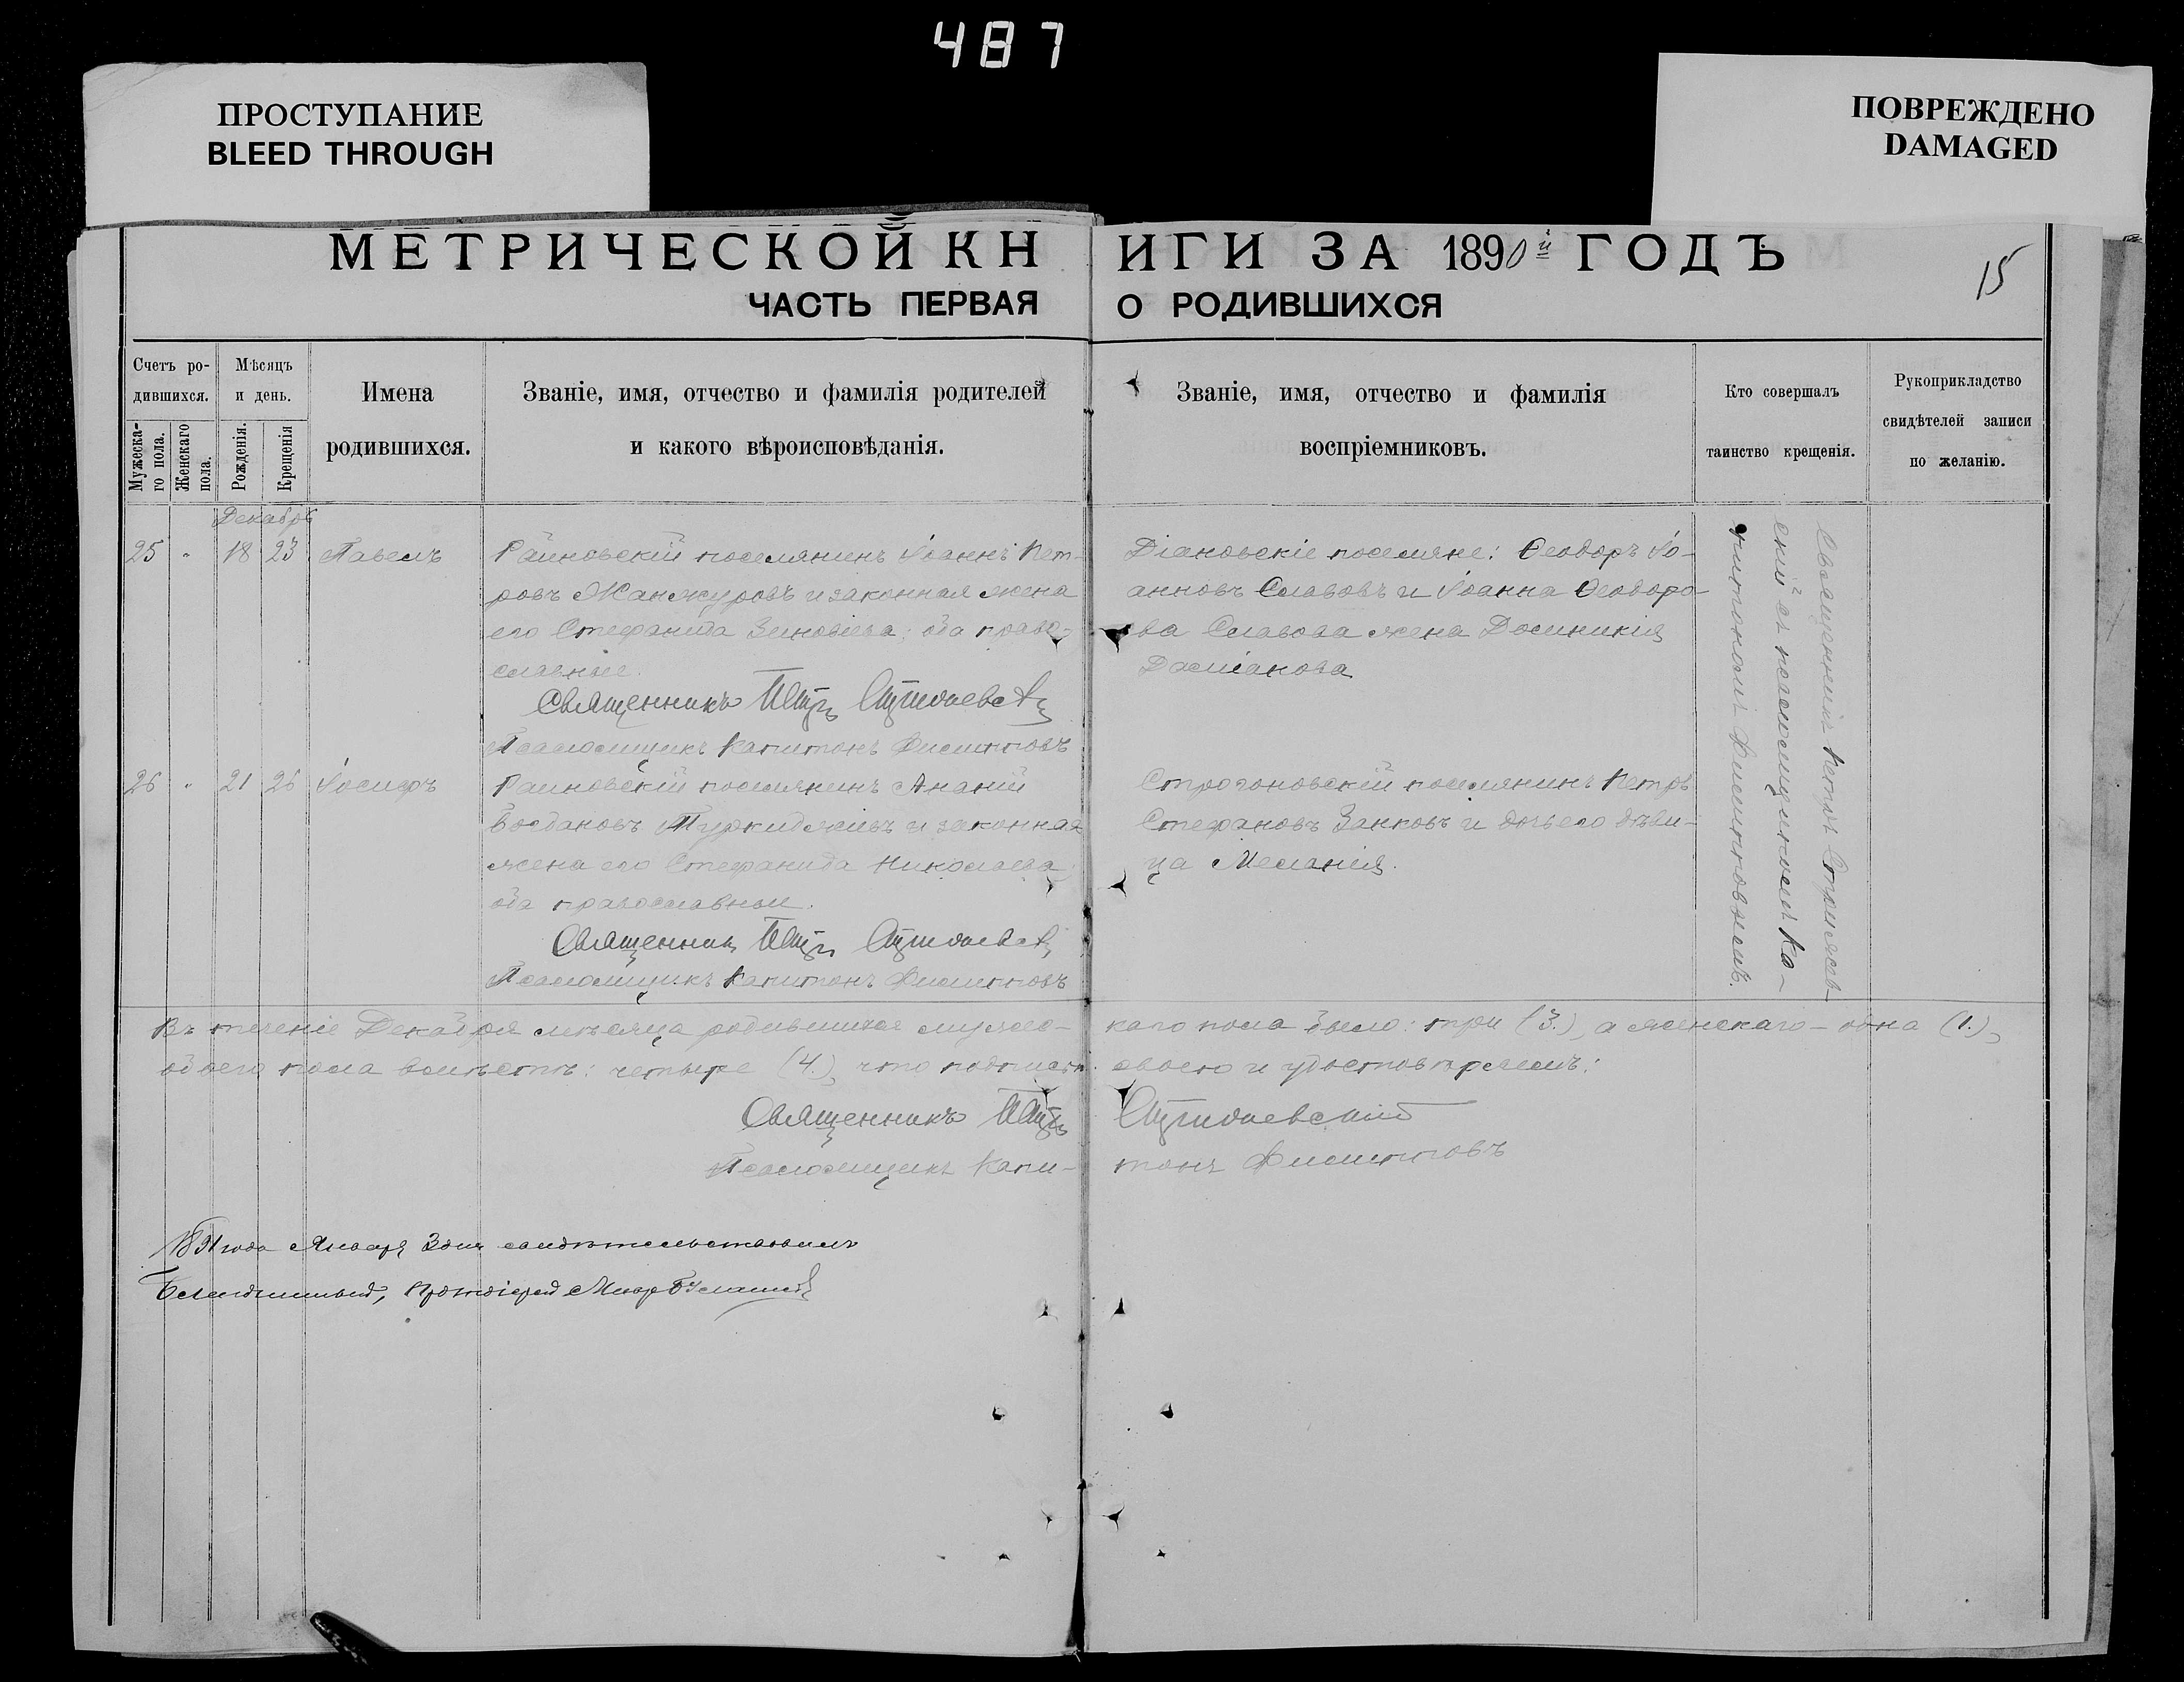 487
ПРОСТУПАНИЕ
BLEED THROUGH
ПОВРЕЖДЕНО
DAMAGED
МЕТРИЧЕСКОЙ КНИГИ ЗА 1890й ГОДЪ
15
ЧАСТЬ ПЕРВАЯ О РОДИВШИХСЯ
Счетъ ро-
дившихся.
Мужеска-
го пола.
Женскаго
пола.
Мѣсяцъ
и день.
Рожденія.
Крещенія
Имена
родившихся.
Званіе, имя, отчество и фамилія родителей
и какого вѣроисповѣданія.
Званіе, имя, отчество и фамилія
воспріемниковъ.
Кто совершалъ
таинство крещенія.
Рукоприкладство
свидѣтелей записи
по желанію.
Декабрь
25 " 18 23 Павелъ
Раиновскій поселянинъ Іоаннъ Пет-
ровъ Манжуровъ и законная жена
его Стефанида Зиновіева; оба право-
славные.
Священникъ Петръ
Псаломщикъ Капитонъ Филипповъ
Діановскіе поселяне: Ѳеодоръ Іо-
анновъ Славовъ и Іоанна Ѳеодоро-
ва Славова жена Доминикія
Даміанова
26 " 21 26 Іосифъ
Раиновскій поселянинъ Ананій
Богдановъ Туркиджиевъ и законная
жена его Стефанида Николаева
оба православные.
Священникъ Петръ
Псаломщикъ Капитонъ Филипповъ
Строгоновскій поселянинъ Петръ
Стефановъ Занковъ и дочь его дѣви-
ца Меланія.
Священникъ Петръ Стрижев-
скій съ псаломщикомъ Ка-
питономъ Филипповымъ.
Въ теченіе Декабря мѣсяца родившихся мужес-
каго пола было: три (3.), а женскаго - одна (1.),
обоего пола вмѣстѣ: четыре (4.), что подписью
своею и удостовѣряемъ:
Священникъ Петръ
Псаломщикъ Капи-
тонъ Филипповъ
1891 года Января 3 дня свидѣтельствовалъ
Благочинный, Протоіерей